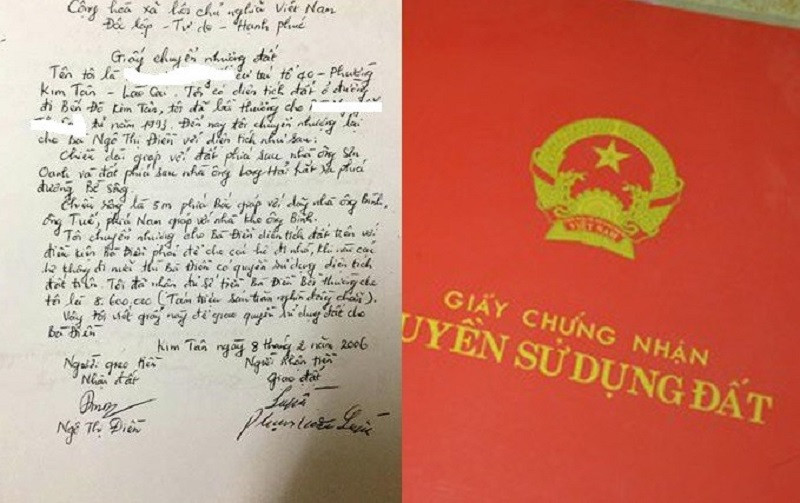 Cộng hoà xã hội chủ nghĩa Việt Nam
Độc lập - Tự do - Hạnh phúc
Giấy chuyển nhượng đất
Tên tôi là cư trú tổ 40 - Phường
Kim Tân - Lào Cai. Tôi có diện tích đất ở đường
đi Bến Đá Kim Tân, tôi đã bồi thường cho
từ năm 1993. Đến nay tôi chuyển nhượng lại
cho Bà Ngô Thị Điền với diện tích như sau:
Chiều dài giáp với đất phía sau nhà ông Sơn
Oanh và đất phía sau nhà ông Long Hải
đường Bờ Sông.
Chiều rộng là 5m phía Bắc giáp với nhà ông Bính,
ông Tuế, phía Nam giáp với nhà kho ông Bính.
Tôi chuyển nhượng cho Bà Điền diện tích đất trên với
điều kiện Bà Điền phải để cho các hộ đi nhờ, khi nào các
hộ không đi nữa thì Bà Điền có quyền sử dụng diện tích
đất trên. Tôi đã nhận đủ số tiền Bà Điền Bồi thường cho
tôi là 8.600.000 (Tám triệu sáu trăm nghìn đồng chẵn).
Vậy tôi viết giấy này để giao quyền sử dụng đất cho
Bà Điền
Kim Tân ngày 8 tháng 2 năm 2006
Người giao tiền Người nhận tiền
Nhận đất Giao đất
Ngô Thị Điền
VIỆT NAM
GIẤY CHỨNG NHẬN
UYỀN SỬ DỤNG ĐẤT